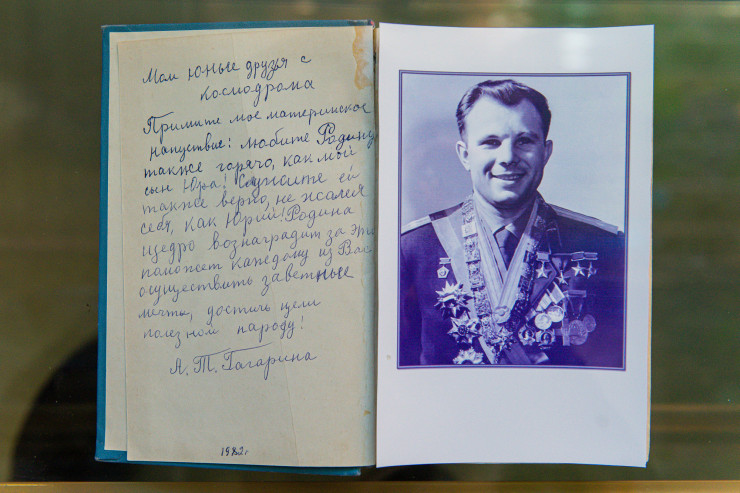 Мои юные друзья с
космодрома
Примите мое материнское
напуствие: любите Родину
также горячо, как мой
сын Юра! Служите ей
также верно, не жалея
себя, как Юрий! Родина
щедро вознаградит за это
поможет каждому из Вас
осуществить заветные
мечты, достичь цели
полезной народу!
А. Т. Гагарина
1982г.